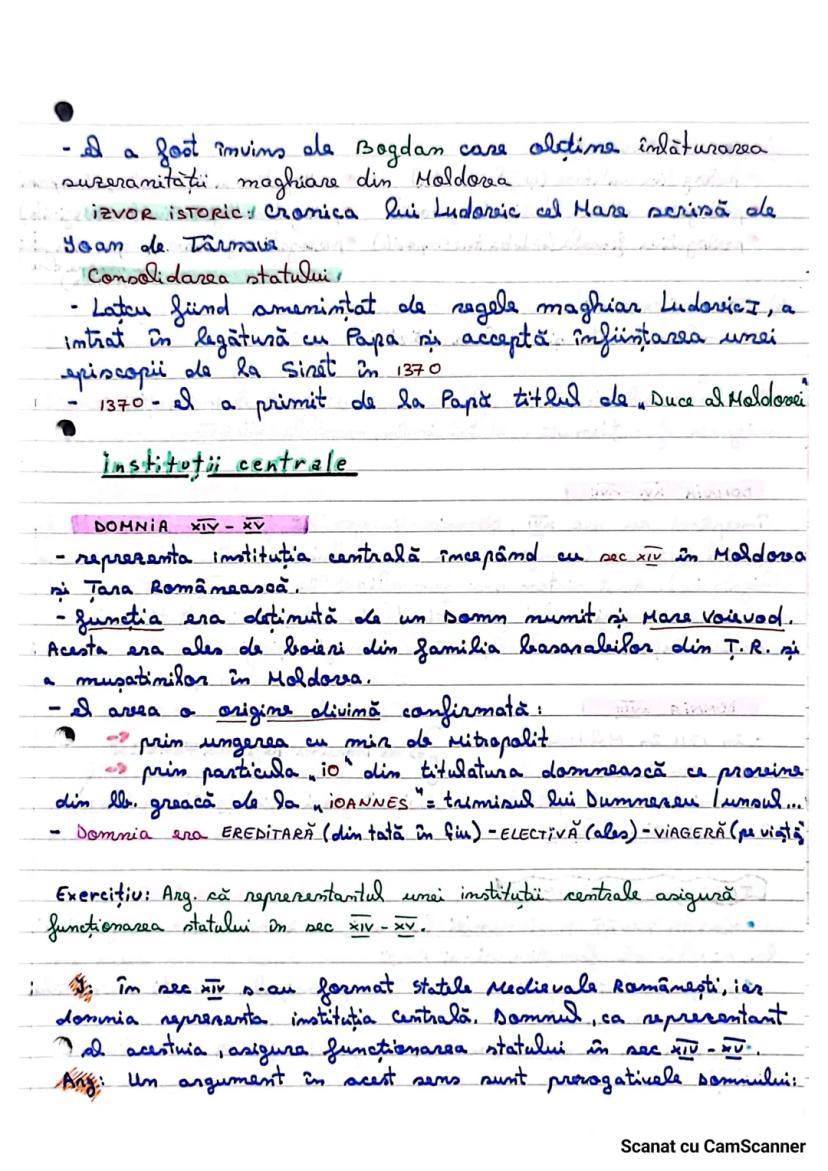 - El a fost învins de Bogdan care obține înlăturarea
suzeranității maghiare din Moldova
IZVOR ISTORIC: Cronica lui Ludovic cel Mare scrisă de
Ioan de Târnave
Consolidarea statului:
- Lațcu fiind amenințat de regele maghiar Ludovic I, a
intrat în legătură cu Papa și acceptă înființarea unei
episcopii de la Siret în 1370
- 1370 - el a primit de la Papă titlul de „Duce al Moldovei"
Instituții centrale
DOMNIA XIV - XV
- reprezenta instituția centrală începând cu sec XIV în Moldova
și Țara Românească.
- funcția era deținută de un Domn numit și Mare Voievod.
Acesta era ales de boieri din familia basarabilor din Ț.R. și
a mușatinilor în Moldova.
- El avea o origine divină confirmată:
→ prin ungerea cu mir de Mitropolit
→ prin particula „IO" din titulatura domnească ce provine
din lb. greacă de la „IOANNES" = trimisul lui Dumnezeu / unsul...
- Domnia era EREDITARĂ (din tată în fiu) - ELECTIVĂ (ales) - VIAGERĂ (pe viață)
Exercițiu: Arg. că reprezentantul unei instituții centrale asigură
funcționarea statului în sec XIV - XV.
I: În sec XIV s-au format Statele Medievale Românești, iar
domnia reprezenta instituția centrală. Domnul, ca reprezentant
al acestuia, asigura funcționarea statului în sec XIV - XV.
Arg: Un argument în acest sens sunt prerogativele Domnului:
Scanat cu CamScanner